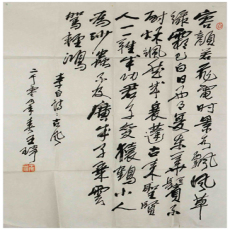 容顏若飛電時景如飄風草
綠霜已白日西月復東華鬢不
耐秋颯然成衰蓬古來聖賢
人一一誰成功君子變猿鶴小人
為沙蟲不及廣成子乘雲
駕輕鴻
李白詩古風
二千零四年春